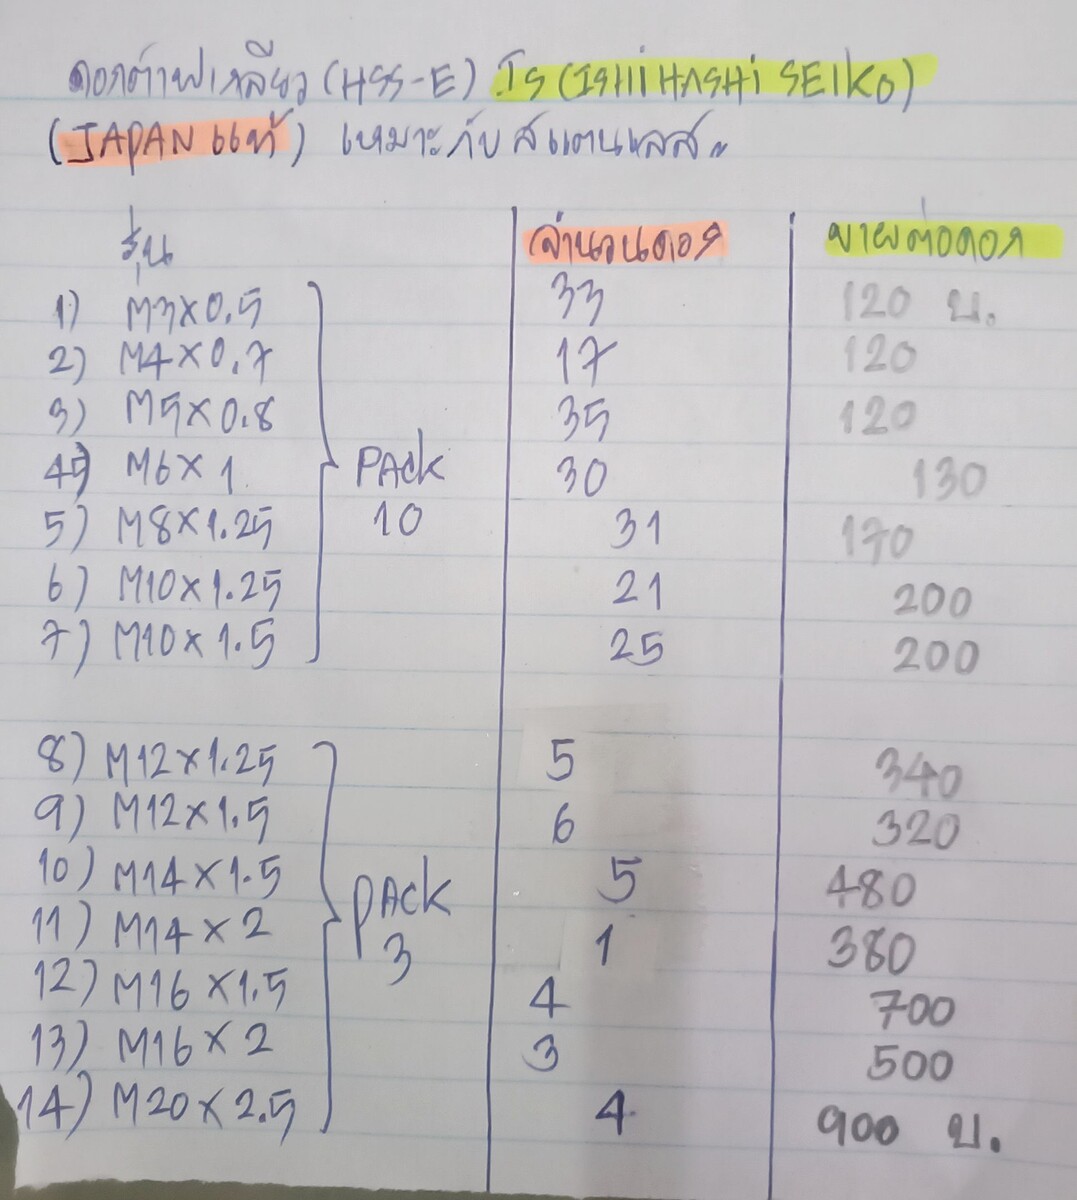 ดอกต๊าฟเกลียว (HSS-E) IS (ISHiHASHi SEIKO)
(JAPAN แท้) เหมาะกับสแตนเลส
รุ่น จำนวนดอก ขายต่อดอก
1) M3×0.5 33 120 บ.
2) M4×0.7 17 120
3) M5×0.8 35 120
4) M6×1 PACK 30 130
5) M8×1.25 10 31 170
6) M10×1.25 21 200
7) M10×1.5 25 200
8) M12×1.25 5 340
9) M12×1.5 6 320
10) M14×1.5 PACK 5 480
11) M14×2 3 1 380
12) M16×1.5 4 700
13) M16×2 3 500
14) M20×2.5 4 900 บ.